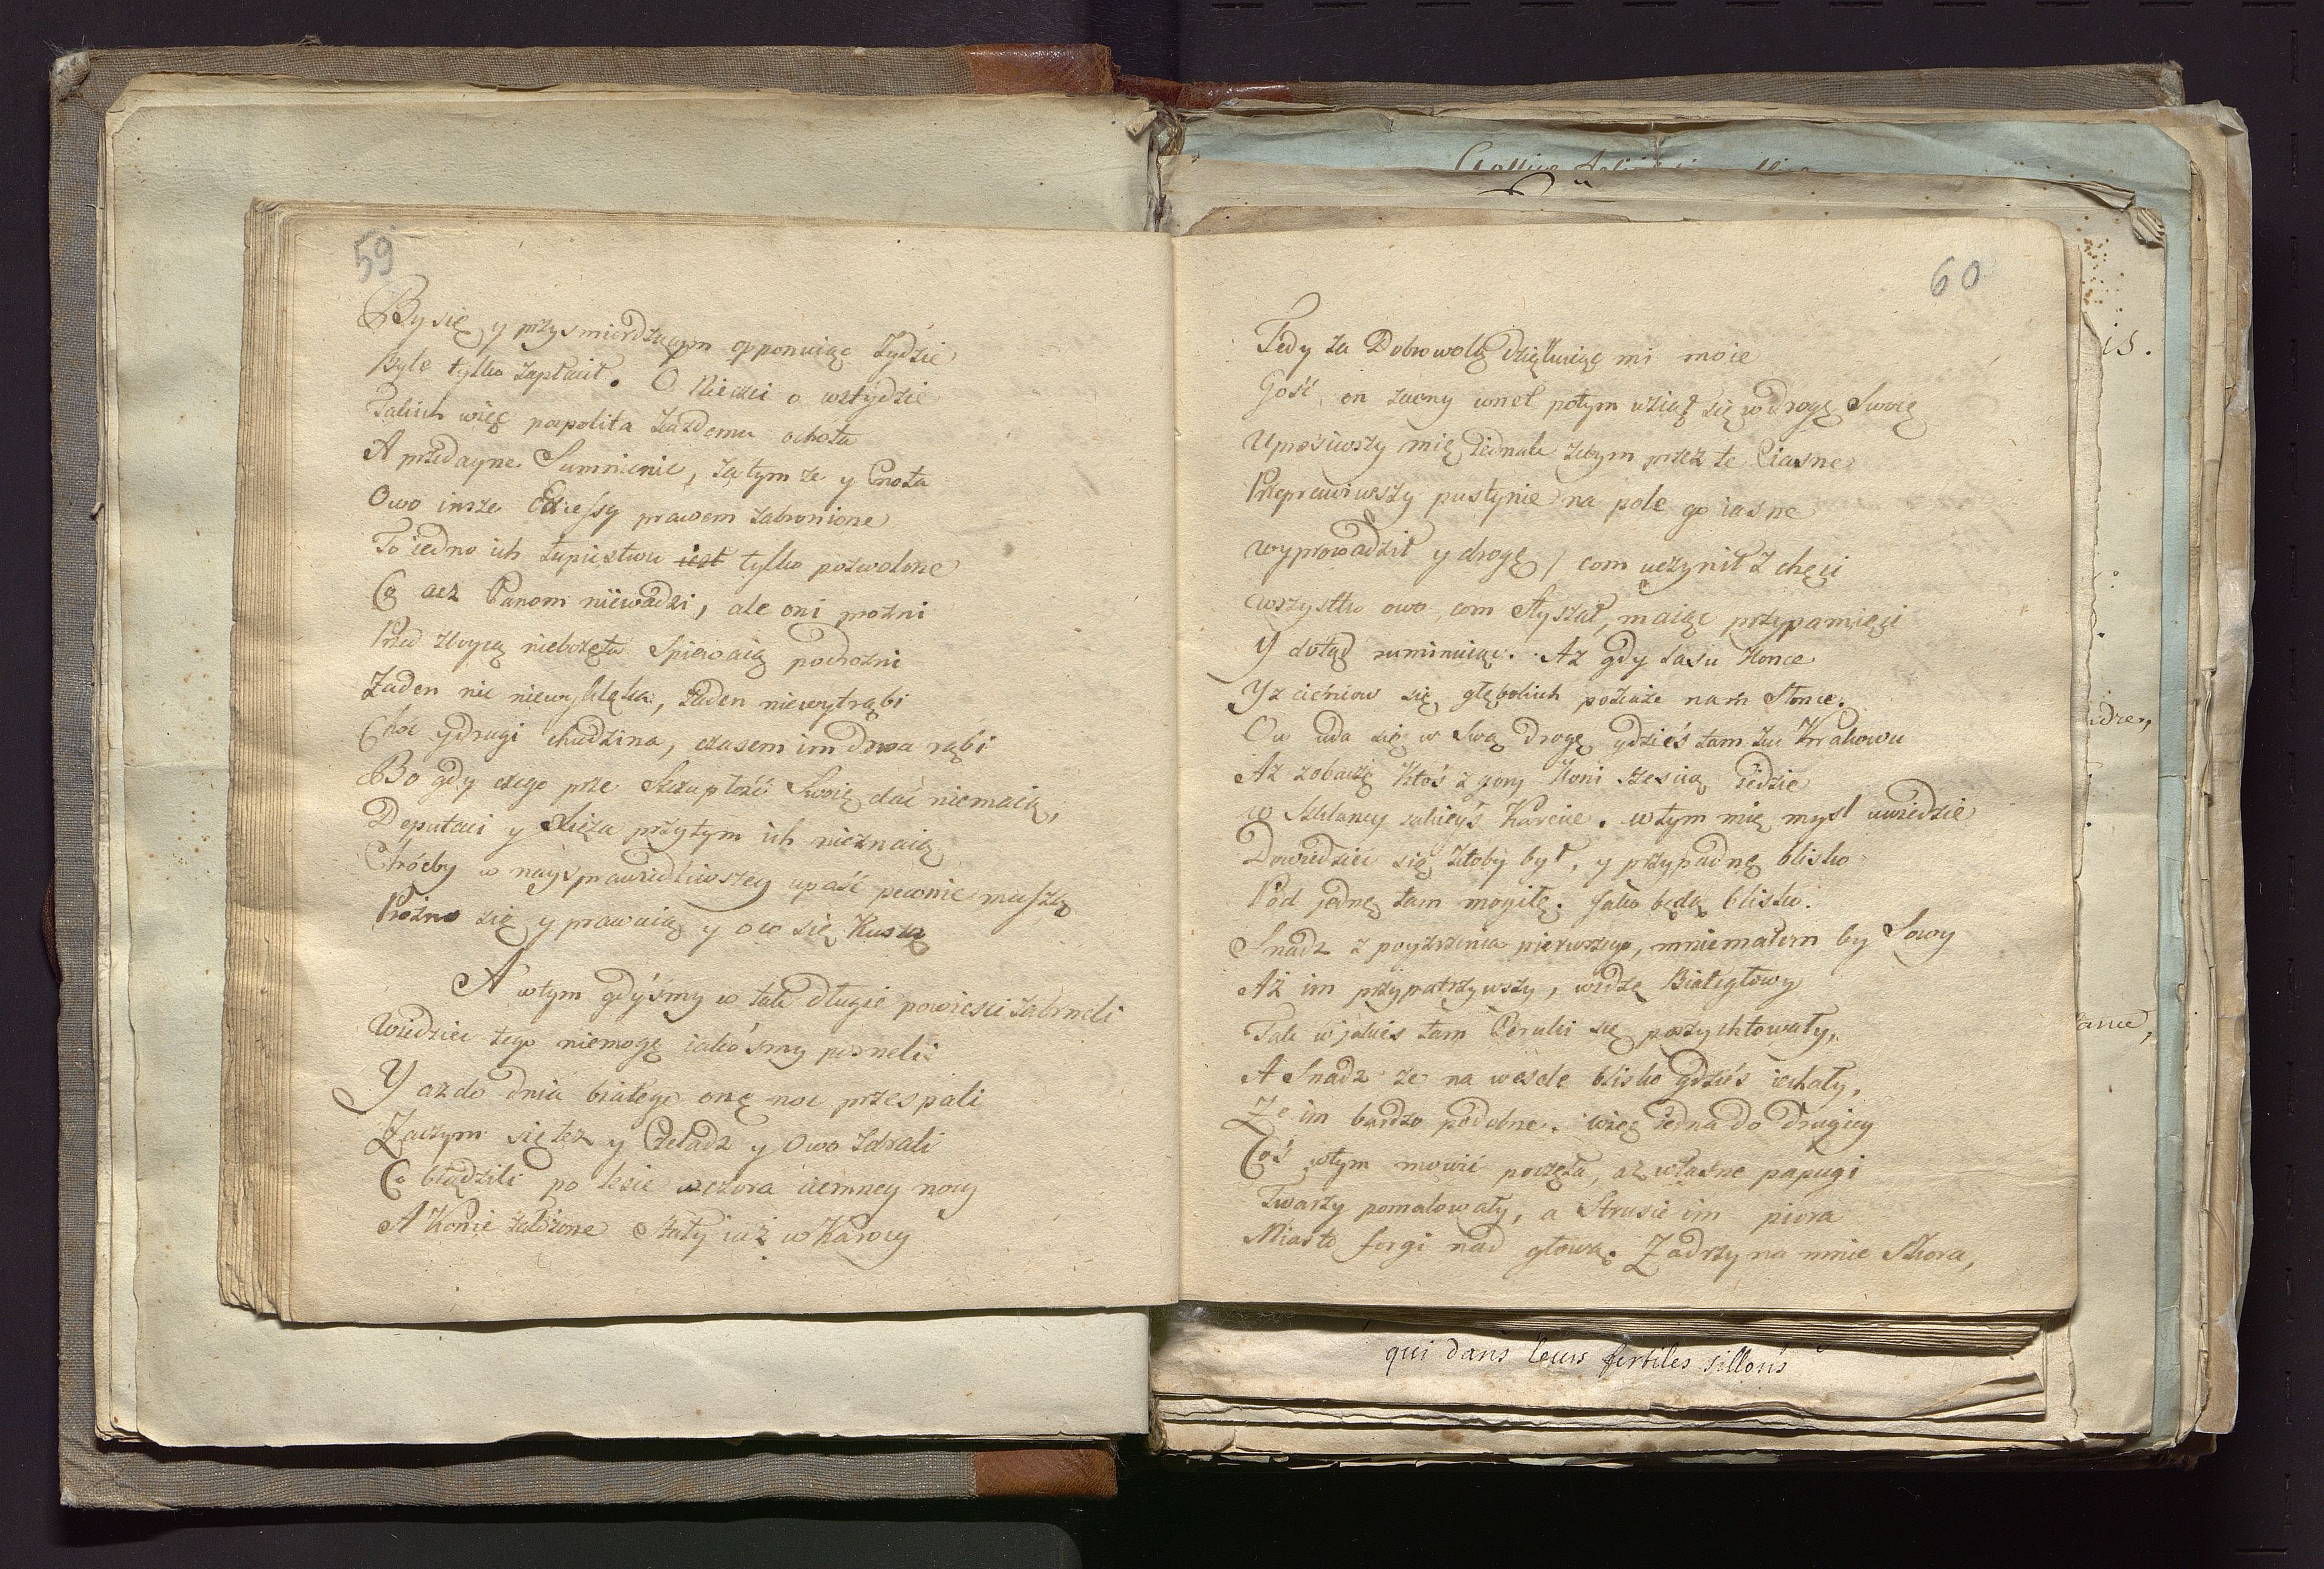 59
By się y przy smierdzącym opponuiąc Zydzie
Byle tylko zapłacił. O Niecnci o wstydzie
Takich więc pospolita każdemu ochota
A przedayne Sumnienie, zatym ze y Cnota
Owo insze Excessy prawem zabronione
To iedno ich łupiestwu iest tylko pozwolone
Co acz Panom niewadzi, ale oni prozni
Przed zboycą niebożęta Spiewaią podrozni
Zaden nic niewyklęka, zaden niewytrąbi
Choc y drugi chudzina, czasem im drwa rąbi
Bo gdy czego prze Szczupłość Swoię dać niemaią,
Deputaci y Xięża przytym ich nieznaią
Choćby w naysprawiedliwszey upaść pewnie muszą
Prózno się y prawuią y o co się Kuszą
A wtym gdyśmy w tak długie powiesci zabrneli
Wiedziec tego niemogę iakośmy posneli
Y az do dnia białego onę noc przespali
Zaczym się tez y Czeladz y Owo zebrali
Co błądzili po lesie wczora ciemney nocy
A Konie założone stały iuż w Karocy
60
Tedy za Dobrowolą dziękuiąc mi moie
Gość on zacny wnet potym wziął się w drogę Swoię
Uprosiwszy mię iednak zebym przez te Ciasne
Przeprawiwszy pustynie na pole go iasne
wyprowadził y drogę / com uczynił z chęci
wszystko owo com Słyszał, maiąc przy pamięci
Y dotąd ruminuiąc. Az gdy lasu Konce
Y z cieniow się głębokich pokaże nam Słonce.
Ow uda się w Swą drogę gdzieś tam ku Krakowu
Az zobaczę Ktoś z gory Koni szescią iedzie
w Szklaney jakieyś Karecie. wtym mię mysl uwiedzie
Dowiedzieć się ktoby był, y przypadnę blisko
Pod jednę tam mogiłę. Jako będą blisko.
Snadz z poyźrzenia pierwszego, mniemałem by Sowy
Aż im przypatrzywszy, widzę Białegłowy
Tak w jakies tam Peruki się poszychtowały,
A Snadz ze na wesele blisko gdzieś iechały,
Ze im bardzo podobne. więc iedna do drugiey
Coś wtym mowić poczęła, aż własne papugi
Twarzy pomalowały, a Strusie im piora
Miasto forgi nad głową. Zadrzy na mnie Skora,
is.
idrer,
ance,
qui dans leurs fertiles sillons